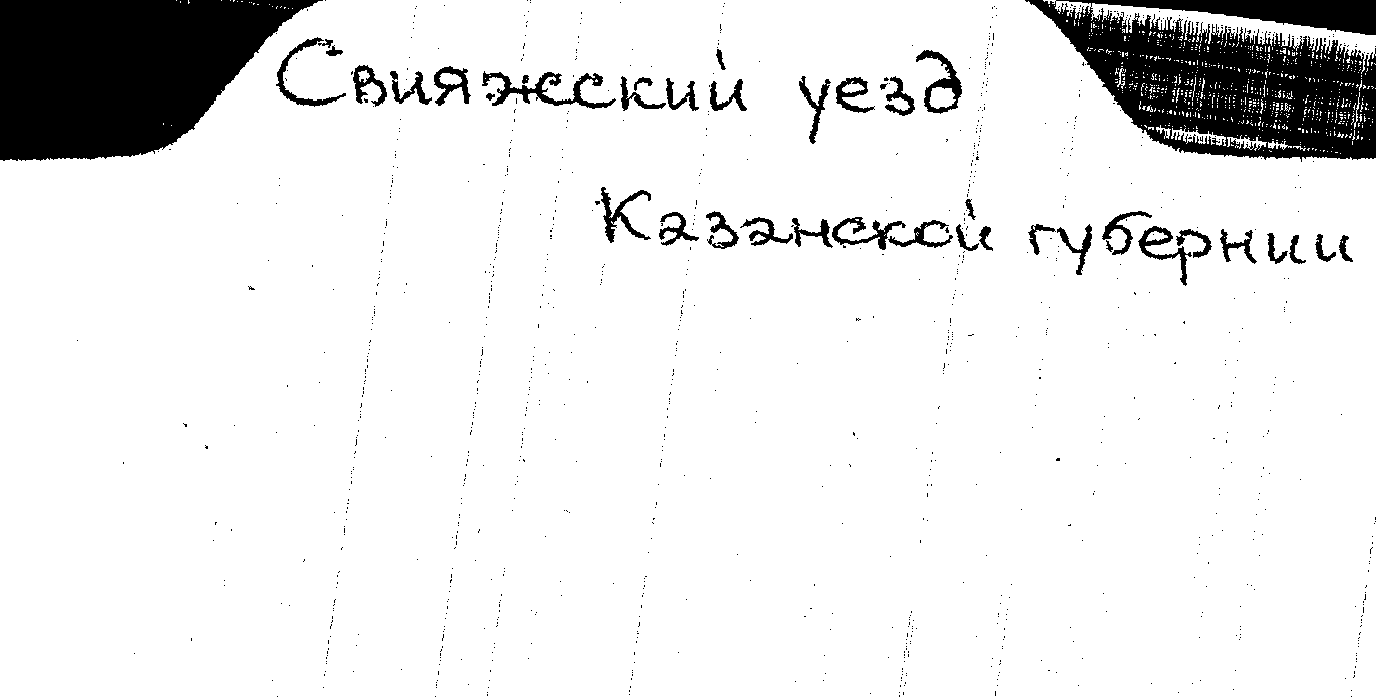 Свияжский уезд
Казанской губернии